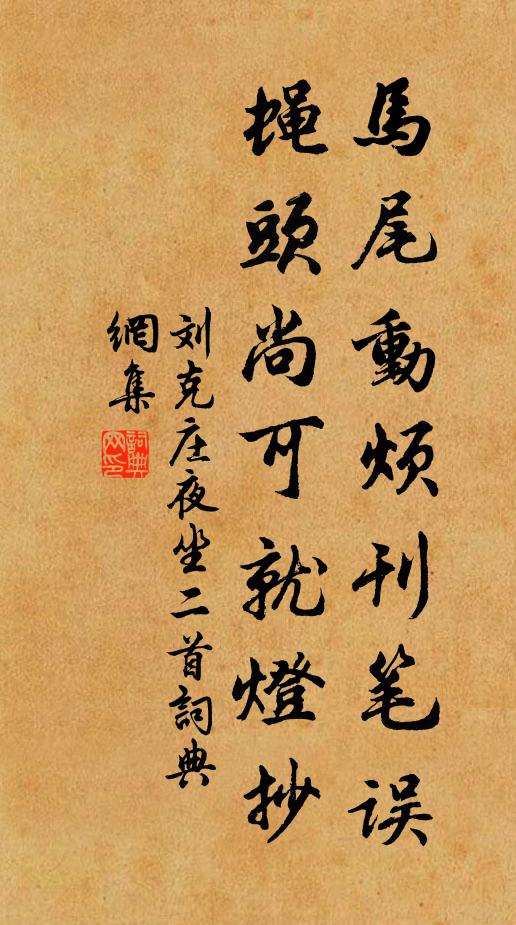 馬尾動煩刊笔误
蝇頭尚可就燈抄
刘克庄夜坐二首詞典
網集
詞典网印